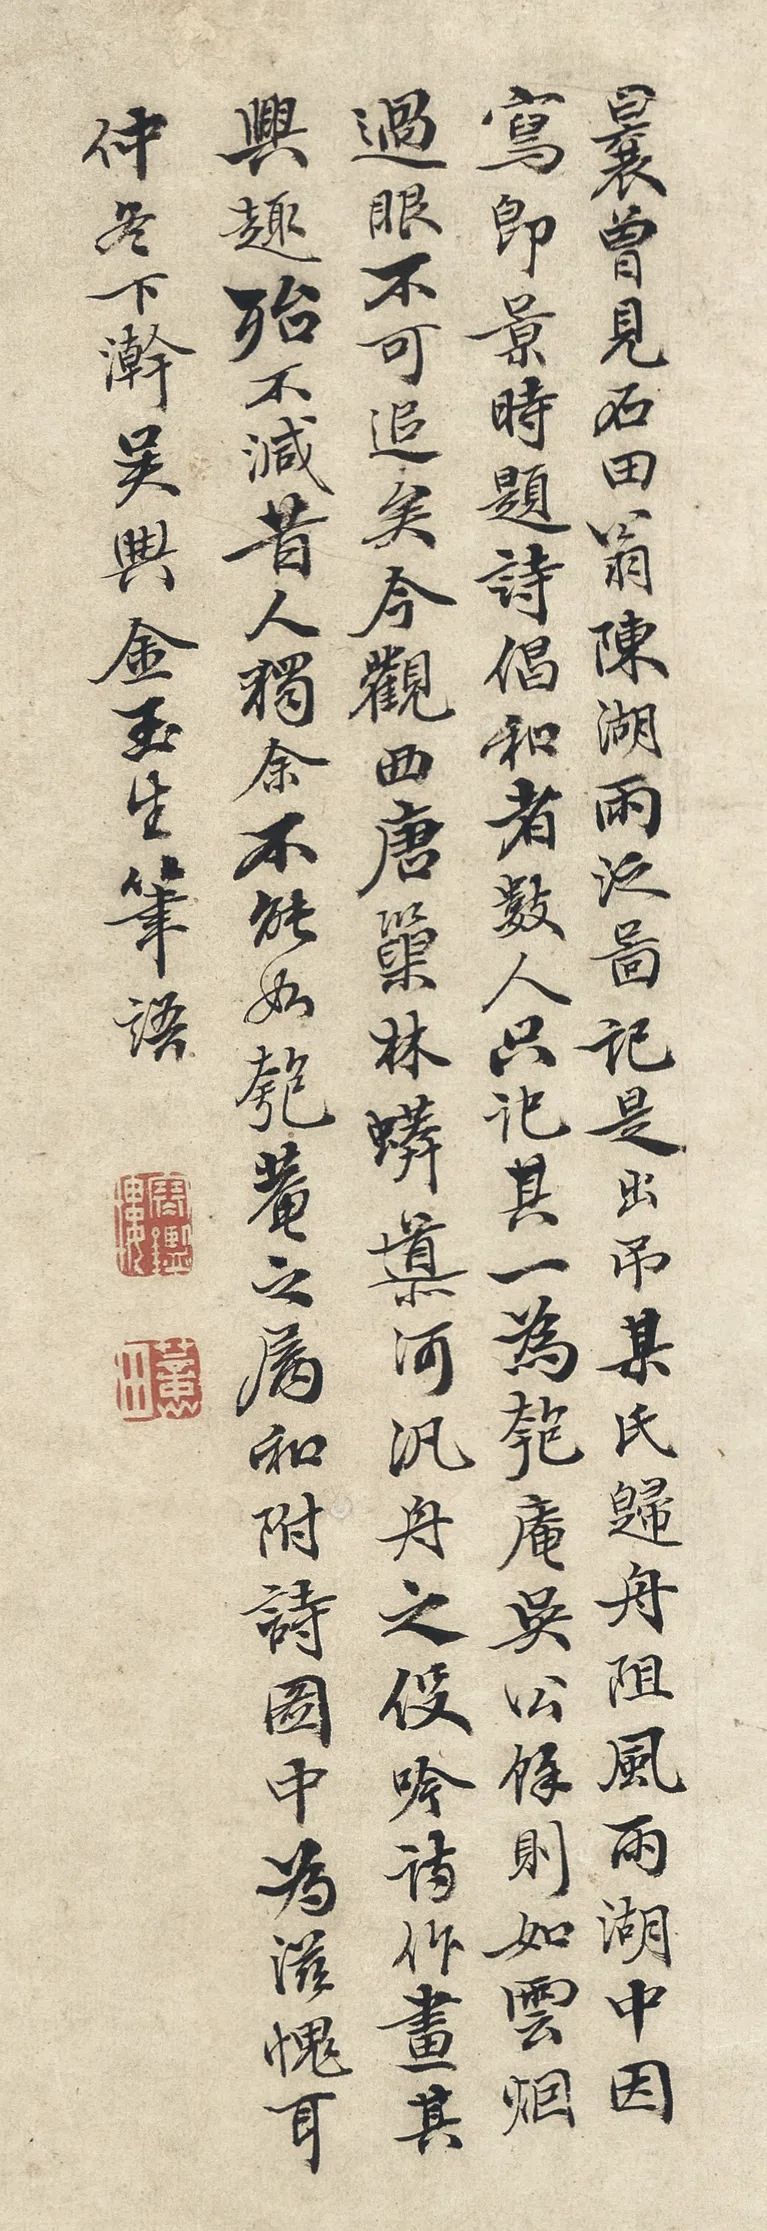 曩曾見石田翁陳湖雨泛啚記是出吊某氏歸舟阻風雨湖中因
寫即景時題詩倡和者數人只記其一為匏庵吳公餘則如雲烟
過眼不可追矣今觀西唐巢林蟒導河汎舟之役吟詩作畫其
興趣殆不減昔人獨余不能如匏菴之屬和附詩圖中為滋愧耳
仲冬下澣吳興金玉生筆語